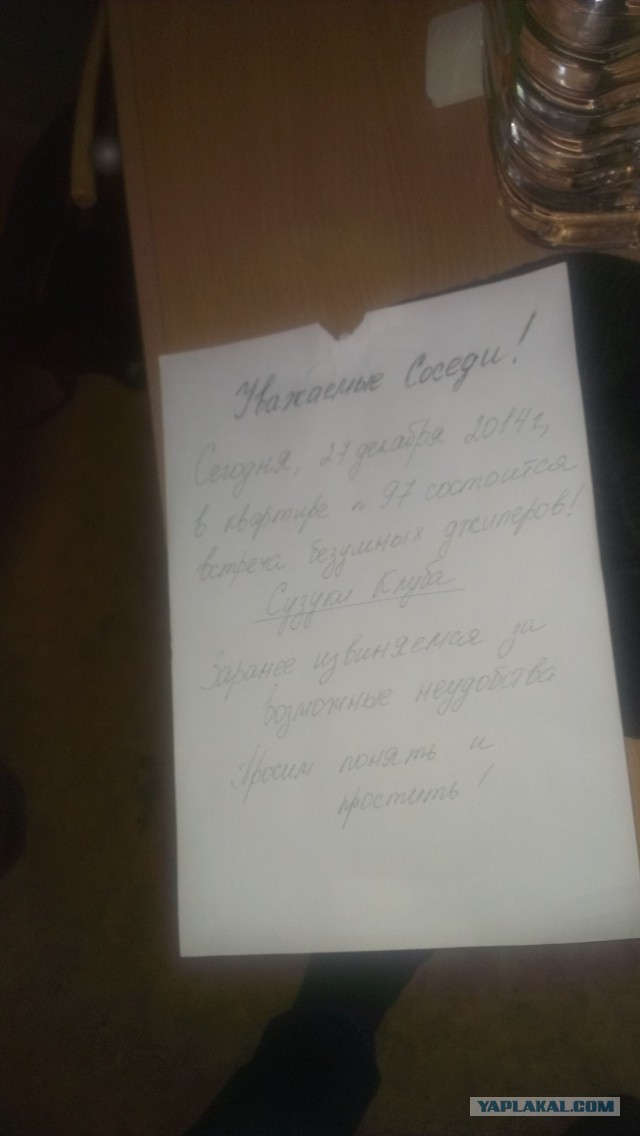 Уважаемые Соседи!
Сегодня, 27 декабря 2014г,
в квартире n 97 состоится
встреча безумных джиперов!
Сузуки Клуба
Заранее извиняемся за
возможные неудобства
Просим понять и
простить!
YAPLAKAL.COM